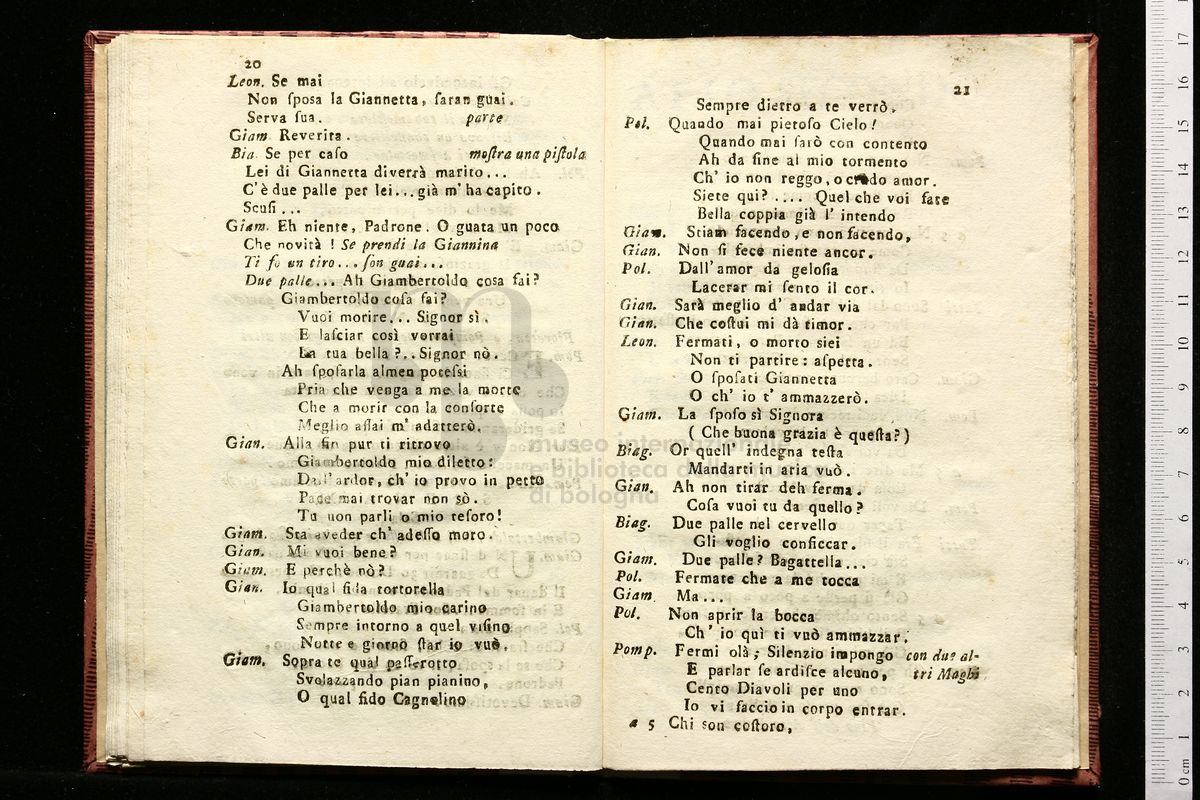 20
Leon. Se mai
Non ſpoſa la Giannetta, ſaran guai.
Serva ſua. parte
Giam Reverita.
Bia. Se per caſo moſtra una piſtola
Lei di Giannetta diverrà marito...
C'è due palle per lei...già m'ha capito.
Scuſi...
Giam. Eh niente, Padrone. O guata un poco
Che novità! Se prendi la Giannina
Ti fo un tiro... ſon guai...
Due palle... Ah Giambertoldo coſa fai?
Giambertoldo coſa fai?
Vuoi morire... Signor sì.
E laſciar così vorrai
La tua bella?.. Signor nò.
Ah ſpoſarla almen poteſſi
Pria che venga a me la morte
Che a morir con la conſorte
Meglio aſſai m' adatterò.
Gian. Alla fin pur ti ritrovo
Giambertoldo mio diletto:
Dall'ardor, ch' io provo in petto
Pace mai trovar non sò.
Tu non parli o mio teſoro!
Giam. Sta aveder ch' adeſſo moro.
Gian. Mi vuoi bene?
Giam. E perchè nò?
Gian. Io qual fida tortorella
Giambertoldo mio carino
Sempre intorno a quel viſino
Notte e giorno ſtar io vuò.
Giam. Sopra te qual paſſerotto
Svolazzando pian pianino,
O qual fido Cagnolino
21
Sempre dietro a te verrò.
Pol. Quando mai pietoſo Cielo!
Quando mai ſarò con contento
Ah da fine al mio tormento
Ch' io non reggo, o crudo amor.
Siete qui? .... Quel che voi fate
Bella coppia già l' intendo
Giam. Stiam facendo, e non facendo,
Gian. Non ſi fece niente ancor.
Pol. Dall'amor da geloſia
Lacerar mi ſento il cor.
Gian. Sarà meglio d' andar via
Gian. Che coſtui mi dà timor.
Leon. Fermati, o morto siei
Non ti partire: aſpetta.
O ſpoſati Giannetta
O ch' io t' ammazzerò.
Giam. La ſpoſo sì Signora
( Che buona grazia è queſta?)
Biag. Or quell' indegna teſta
Mandarti in aria vuò.
Gian. Ah non tirar deh ferma.
Coſa vuoi tu da quello?
Biag. Due palle nel cervello
Gli voglio conficcar.
Giam. Due palle? Bagattella...
Pol. Fermate che a me tocca
Giam Ma...
Pol. Non aprir la bocca
Ch' io quì ti vuò ammazzar.
Pomp. Fermi olà; Silenzio impongo con due al-
E parlar ſe ardiſce alcuno, tri Maghi
Cento Diavoli per uno
Io vi faccio in corpo entrar.
a 5 Chi son coſtoro,
museo internazionale
e biblioteca d
di bologna